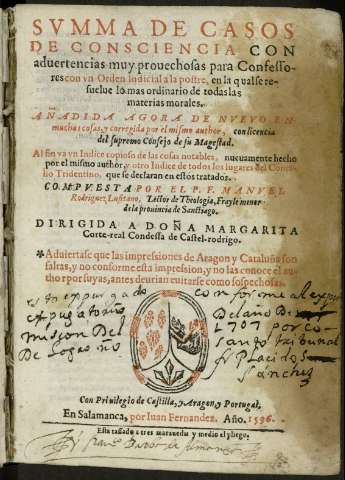 SVMMA DE CASOS
DE CONSCIENCIA CON
aduertencias muy prouechosas para Confesso-
res con vn Orden Iudicial a la postre, en la qual se re-
suelue lo mas ordinario de todas las
materias morales.
AÑADIDA AGORA DE NVEVO EN
muchas cosas, y corregida por el mismo author, con licencia
del supremo Consejo de su Magestad.
Al fin va vn Indice copioso de las cosas notables, nueuamente hecho
por el mismo author, y otro Indice de todos los lugares del Conci-
lio Tridentino, que se declaran en estos tratados.
COMPVESTA POR EL P. F. MANVEL
Rodriguez, Lusitano, Lector de Theologia, Frayle menor
de la prouincia de Sanctiago.
DIRIGIDA A DOÑA MARGARITA
Corte-real Condessa de Castel-rodrigo.
Aduiertase que las impressiones de Aragon y Cataluña son
falsas, y no conforme esta impression, y no las conoce el au-
thor por suyas, antes deurian euitarse como sospechosas.
expurgado conforme al
expurgatorio Del año De
1707 por co-
mision Del santo tribunal
De Logroño
Sanchez
Con Priuilegio de Castilla, y Aragon, y Portugal,
En Salamanca, por Iuan Fernandez. Año. 1596.
Esta tassado a tres marauedis y medio el pliego.